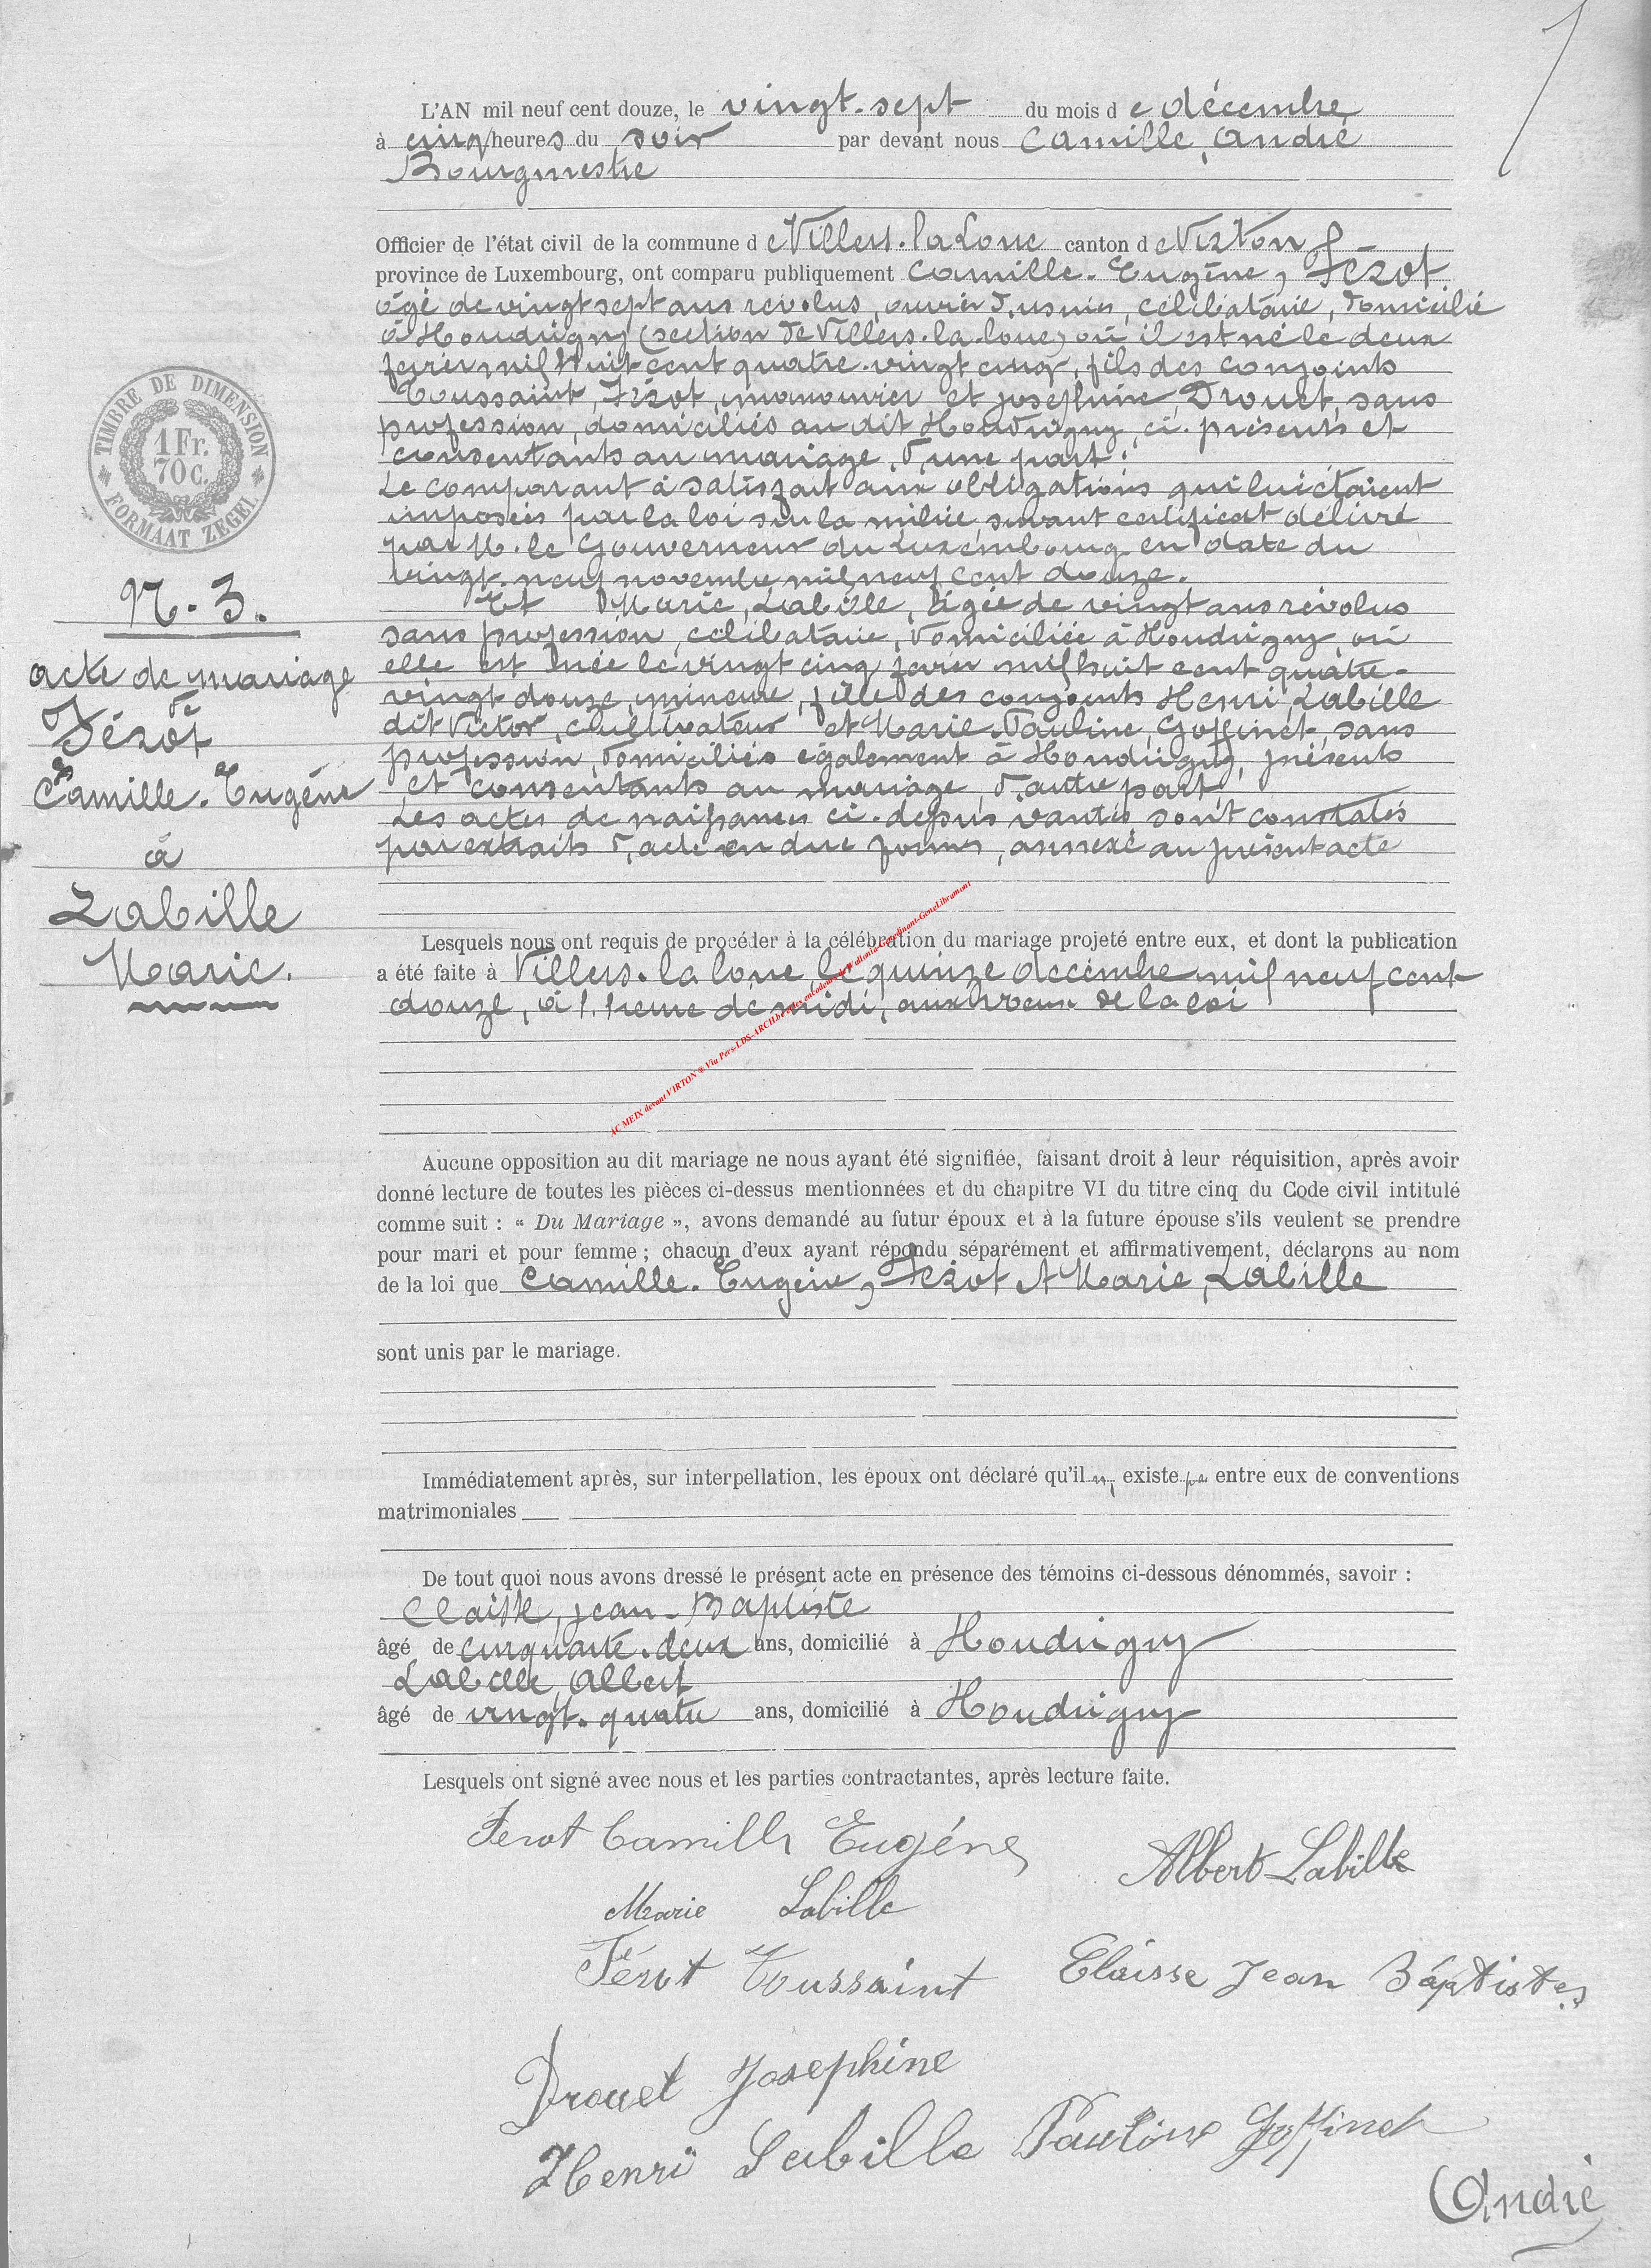 L'AN mil neuf cent douze, le vingt-sept du mois de décembre
à cinq heures du soir par devant nous Camille, André
Bourgmestre
Officier de l'état civil de la commune de Villers-la-Loue canton de Virton
province de Luxembourg, ont comparu publiquement Camille-Eugène, Fézot
âgé de vingt sept ans révolus, ouvrier d'usines, célibataire, domicilié
à Houdrigny (section de Villers-la-loue) où il est né le deux
fevrier mil huit cent quatre-vingt cinq, fils des conjoints
Toussaint, Fézot, manouvrier et Joséphine, Drouet, sans
profession, domiciliés au dit Houdrigny, ci-présents et
consentants au mariage, d'une part.
Le comparant à satisfait aux obligations qui lui étaient
imposées par la loi sur la milice, suivant certificat délivré
par M. le Gouverneur du Luxembourg en date du
vingt-neuf novembre mil neuf cent douze.
Et Marie, Labille, âgée de vingt ans révolus
sans profession, célibataire, domiciliée à Houdrigny, où
elle est née le vingt cinq fevrier mil huit cent quatre-
vingt douze, mineure, fille des conjoints Henri, Labille
dit Victor, cultivateur et Marie-Pauline, Goffinet, sans
profession, domiciliés également à Houdrigny, présents
et consentants au mariage, d'autre part.
Les actes de naissances ci-dessus vantés sont constatés
par extraits d'acte en due formes, annexé au présent acte
TIMBRE DE DIMENSION
1 Fr.
70 c.
FORMAAT ZEGEL
N-3.
acte de mariage
de
Fézot
Camille-Eugène
à
Labille
Marie.
Lesquels nous ont requis de procéder à la célébration du mariage projeté entre eux, et dont la publication
a été faite à Villers-la loue, le quinze décembre mil neuf cent
douze, à l'heure de midi, aux vœux de la loi
Aucune opposition au dit mariage ne nous ayant été signifiée, faisant droit à leur réquisition, après avoir
donné lecture de toutes les pièces ci-dessus mentionnées et du chapitre VI du titre cinq du Code civil intitulé
comme suit : « Du Mariage », avons demandé au futur époux et à la future épouse s'ils veulent se prendre
pour mari et pour femme ; chacun d'eux ayant répondu séparément et affirmativement, déclarons au nom
de la loi que Camille-Eugène, Fézot et Marie, Labille
sont unis par le mariage.
Immédiatement après, sur interpellation, les époux ont déclaré qu'il n'y existe pas entre eux de conventions
matrimoniales
De tout quoi nous avons dressé le présent acte en présence des témoins ci-dessous dénommés, savoir :
Claisse, Jean-Baptiste
âgé de cinquante-deux ans, domicilié à Houdrigny
Labille, Albert
âgé de vingt-quatre ans, domicilié à Houdrigny
Lesquels ont signé avec nous et les parties contractantes, après lecture faite.
Ferot Camille Eugène
Albert Labille
Marie Labille
Férot Toussaint
Claisse Jean Baptiste
Drouet Josephine
Henri Labille
Pauline Goffinet
André